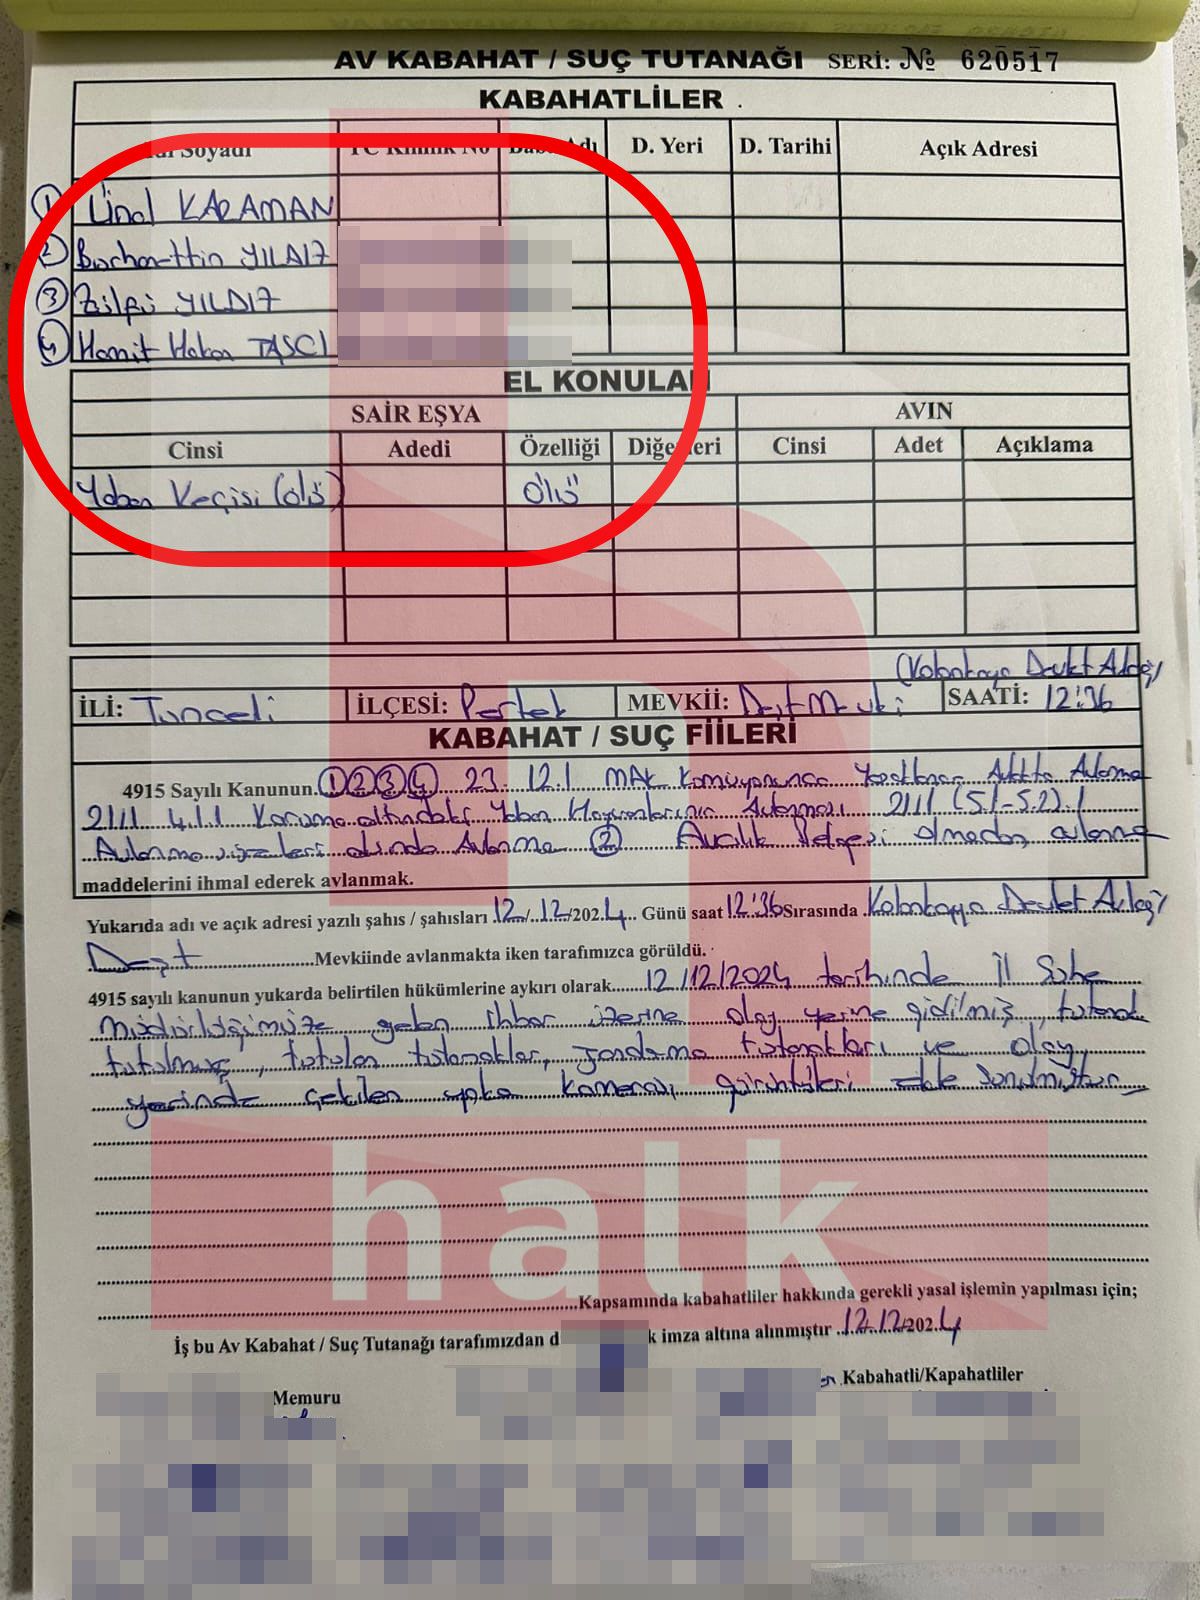 AV KABAHAT / SUÇ TUTANAĞI SERİ: № 620517
KABAHATLİLER
Soyadı TC Kimlik No Baba Adı D. Yeri D. Tarihi Açık Adresi
1 Ünal KARAMAN
2 Burhanettin YILDIZ
3 Zülfü YILDIZ
4 Hamit Hakan TAŞCI
EL KONULAN
SAİR EŞYA AVIN
Cinsi Adedi Özelliği Diğerleri Cinsi Adet Açıklama
Yaban Keçisi (Ölü) Ölü
(Kolankaya Devlet Avlağı
İLİ: Tunceli İLÇESİ: Pertek MEVKİİ: Deşt Mevkii SAATİ: 12:36
KABAHAT / SUÇ FİİLERİ
4915 Sayılı Kanunun 1 2 3 4 23. 12.1 MAK Komisyonunca Yasaklanan Avlakta Avlanma
21/1 4.1.1 Koruma altındaki Yaban Hayvanlarının Avlanması 21/1 (5.1-5.2).1
Avlanma süreleri dışında Avlanma 2 Avcılık Belgesi olmadan avlanma
maddelerini ihmal ederek avlanmak.
Yukarıda adı ve açık adresi yazılı şahıs / şahısları 12/12/2024 Günü saat 12:36 Sırasında Kolankaya Devlet Avlağı
Deşt Mevkiinde avlanmakta iken tarafımızca görüldü.
4915 sayılı kanunun yukarda belirtilen hükümlerine aykırı olarak 12/12/2024 tarihinde İl Şube
Müdürlüğümüze gelen ihbar üzerine olay yerine gidilmiş, tutanak
tutulmuş, tutulan tutanaklar, Jandarma tutanakları ve olay
yerinde çekilen yaka kamerası görüntüleri ekte sunulmuştur
halk
Kapsamında kabahatliler hakkında gerekli yasal işlemin yapılması için;
İş bu Av Kabahat / Suç Tutanağı tarafımızdan d k imza altına alınmıştır 12.12.2024
Memuru Kabahatli/Kapahatliler